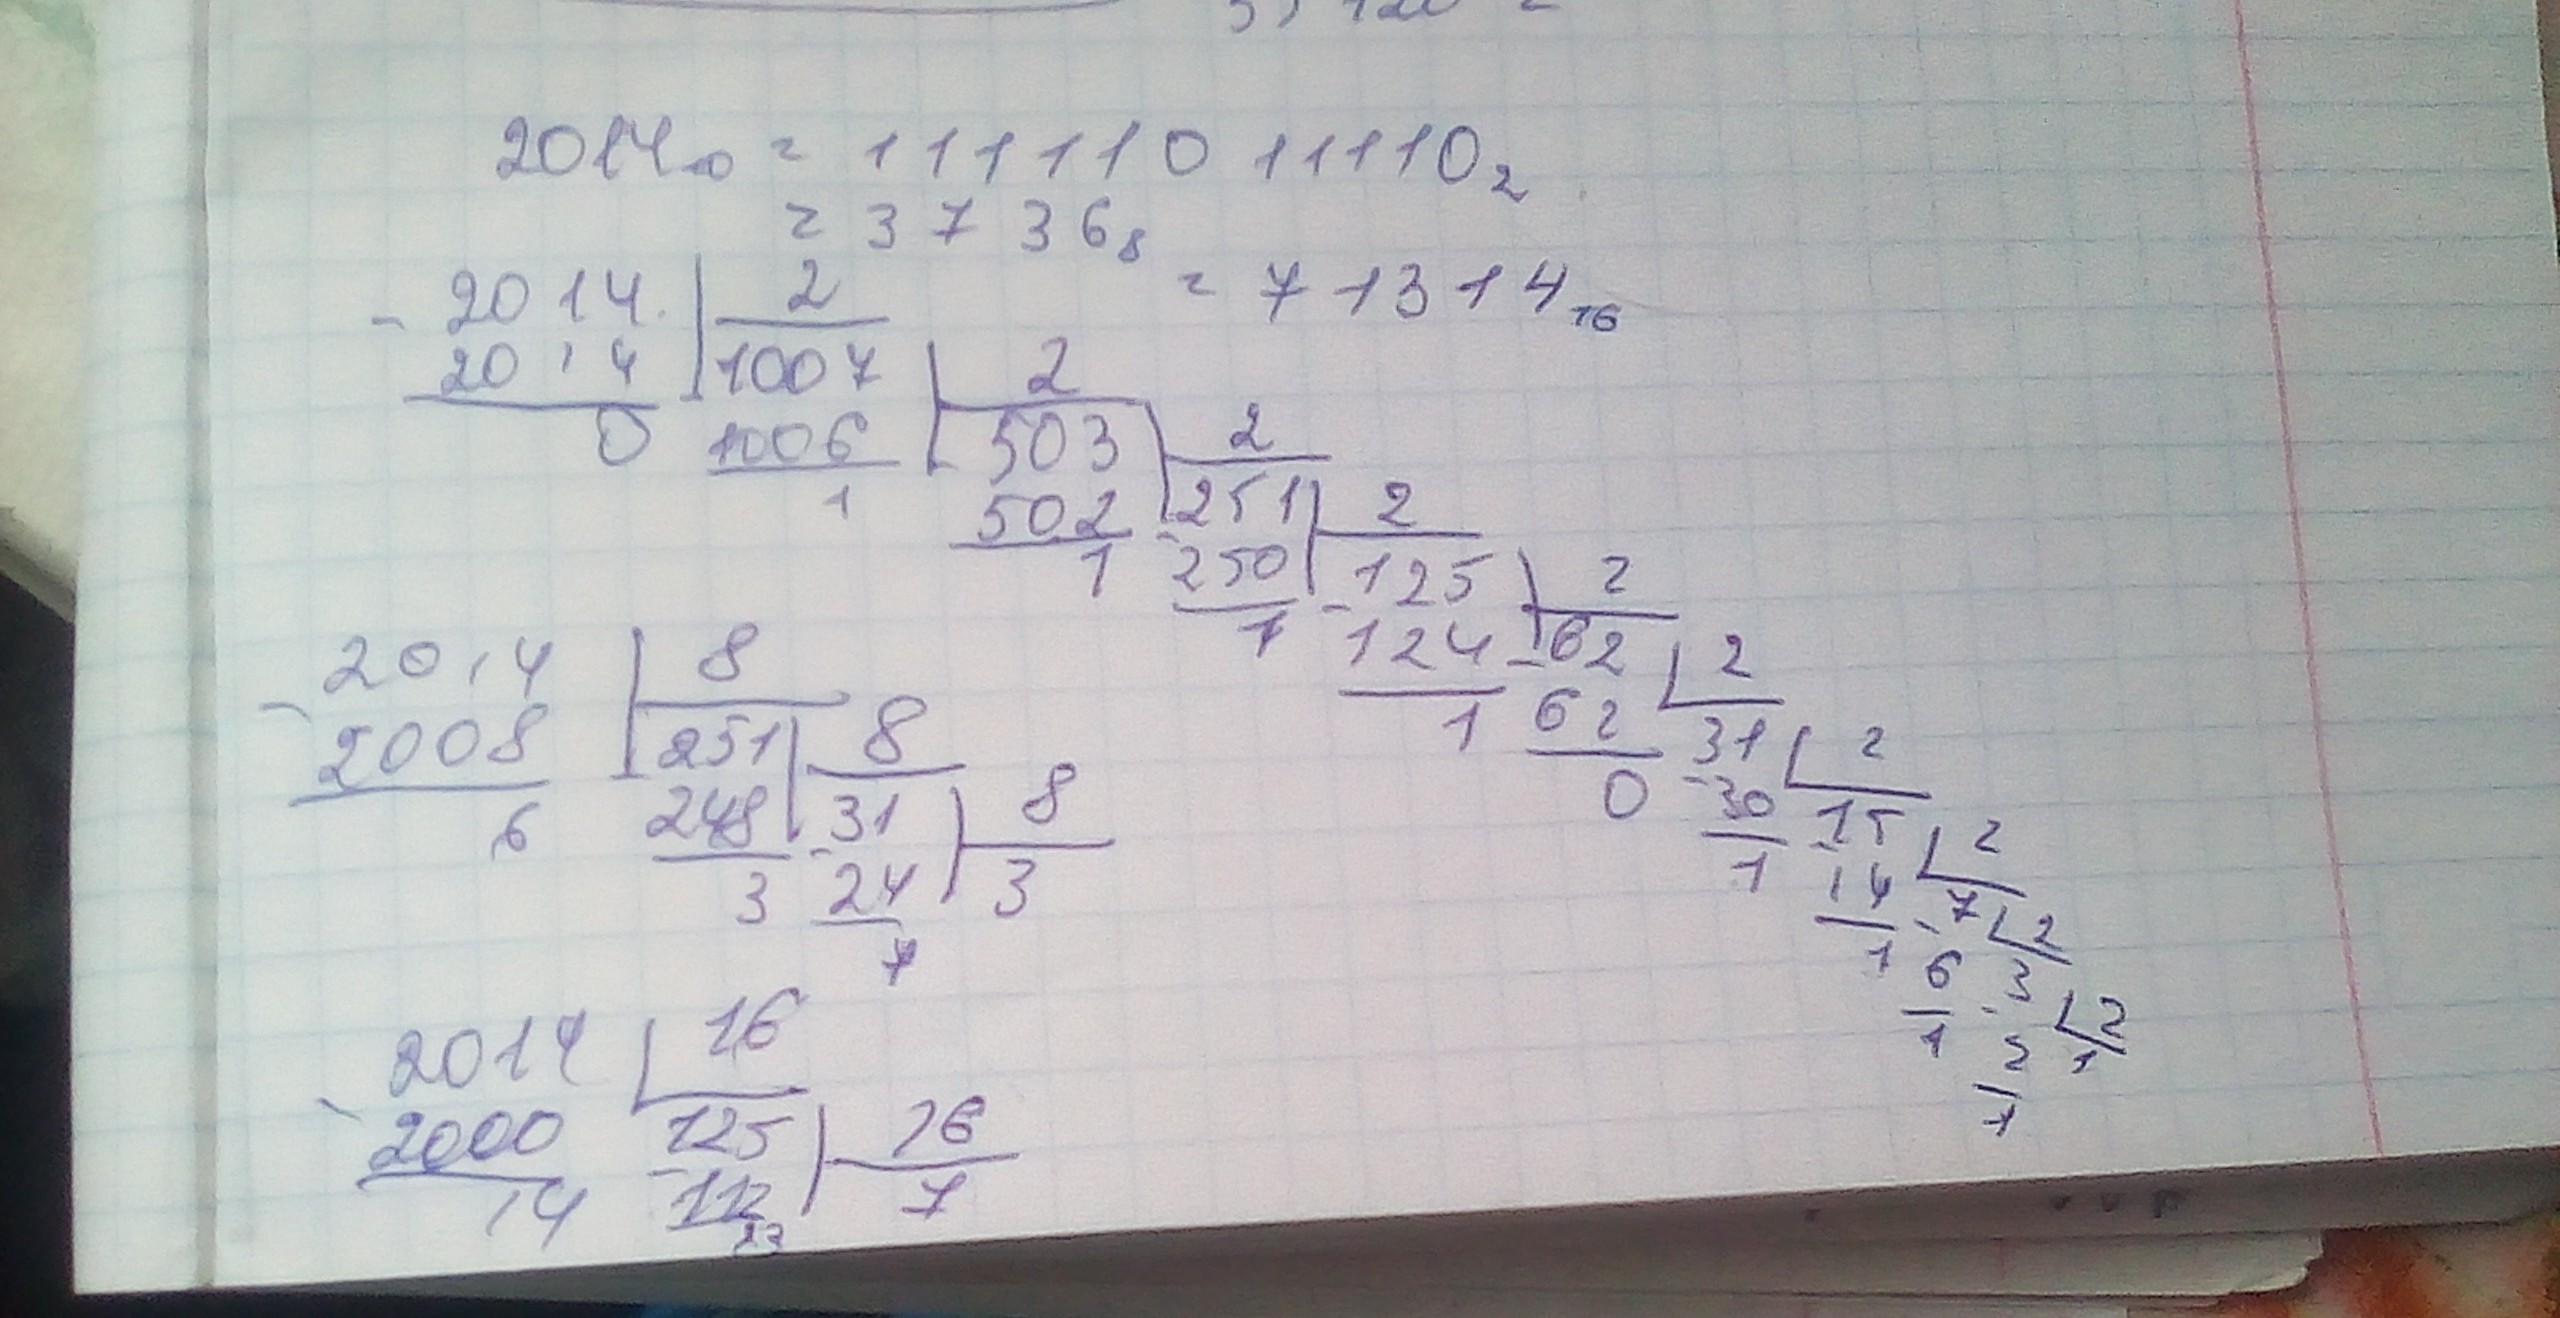 2014₁₀ = 11111011110₂
= 3736₈
= 71314₁₆
- 2014 | 2
2014 | 1007 | 2
0 1006 | 503 | 2
1 502 | 251 | 2
1 250 | 125 | 2
1 - 124 - 62 | 2
1 62 31 | 2
0 - 30 15 | 2
1 - 14 - 7 | 2
1 6 - 3 | 2
1 2 1
1
- 2014 | 8
2008 | 251 | 8
6 248 | 31 | 8
3 - 24 | 3
7
- 2014 | 16
2000 | 125 | 16
14 - 112 | 7
13